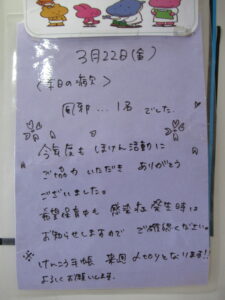 3月22日(金)
〈本日の病欠〉
風邪…1名 でした.
今年度も ほけん活動に
ご協力 いただき ありがとう
ございました。
希望保育中も 感染症発生時は
お知らせしますので ご確認ください。
※けんこう手帳 来週 〆切となります!!
よろしくお願いします。